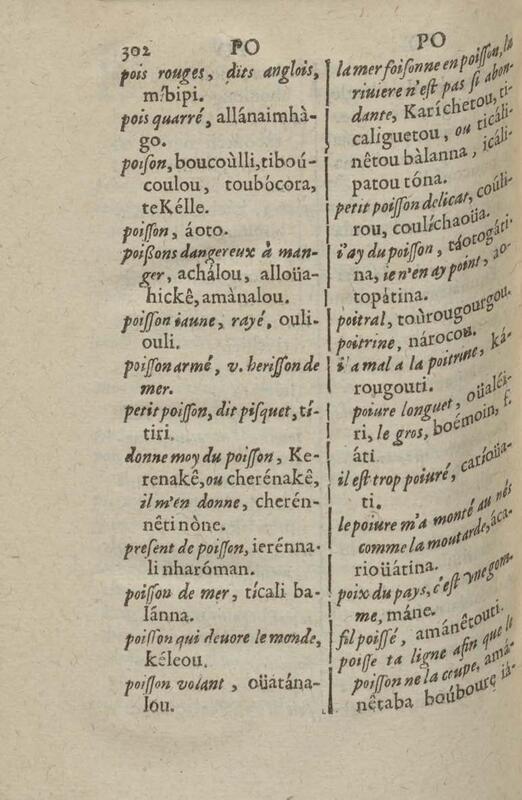 302 PO
pois rouges, dits anglois,
m̃bipi.
pois quarré, allánaimhà-
go.
poiſon, boucoùlli, tiboú-
coulou, toubócora,
teKélle.
poiſſon, áoto.
poißons dangereux à man-
ger, achálou, alloüa-
hickê, amànalou.
poiſſon iaune, rayé, ouli-
ouli.
poiſſon armé, v. heriſſon de
mer.
petit poiſſon, dit piſquet, tí-
tiri.
donne moy du poiſſon, Ke-
renakê, ou cherénakê,
il m'en donne, cherén-
nêti nòne.
preſent de poiſſon, ierénna-
li nharóman.
poiſſon de mer, tícali ba-
lánna.
poiſſon qui deuore le monde,
kéleou.
poiſſon volant, oüatána-
lou.
PO
la mer foiſonne en poiſſon, la
riuiere n'eſt pas ſi abon-
dante, Karíchetou, ti-
calíguetou, ou ticáli-
nêtou bàlanna, icáli-
patou tóna.
petit poiſſon delicat, coúli-
rou, coulíchaoüa.
i'ay du poiſſon, táotogáti-
na, ie n'en ay point, ao-
topátina.
poitral, toùrougourgou.
poitrine, nárocou.
i'a mal a la poitrine, ká-
rougouti.
poiure longuet, oüaléi-
ri, le gros, boémoin, f.
áti
il eſt trop poiuré, caríoüa-
ti.
le poiure m'a monté au nés
comme la moutarde, áca-
rioüátina.
poix du pays, c'eſt vne gom-
me, máne.
fil poiſſé, amánêtouti.
poiſſe ta ligne afin que le
poiſſon ne la coupe, amá-
nêtaba boúboure iá-